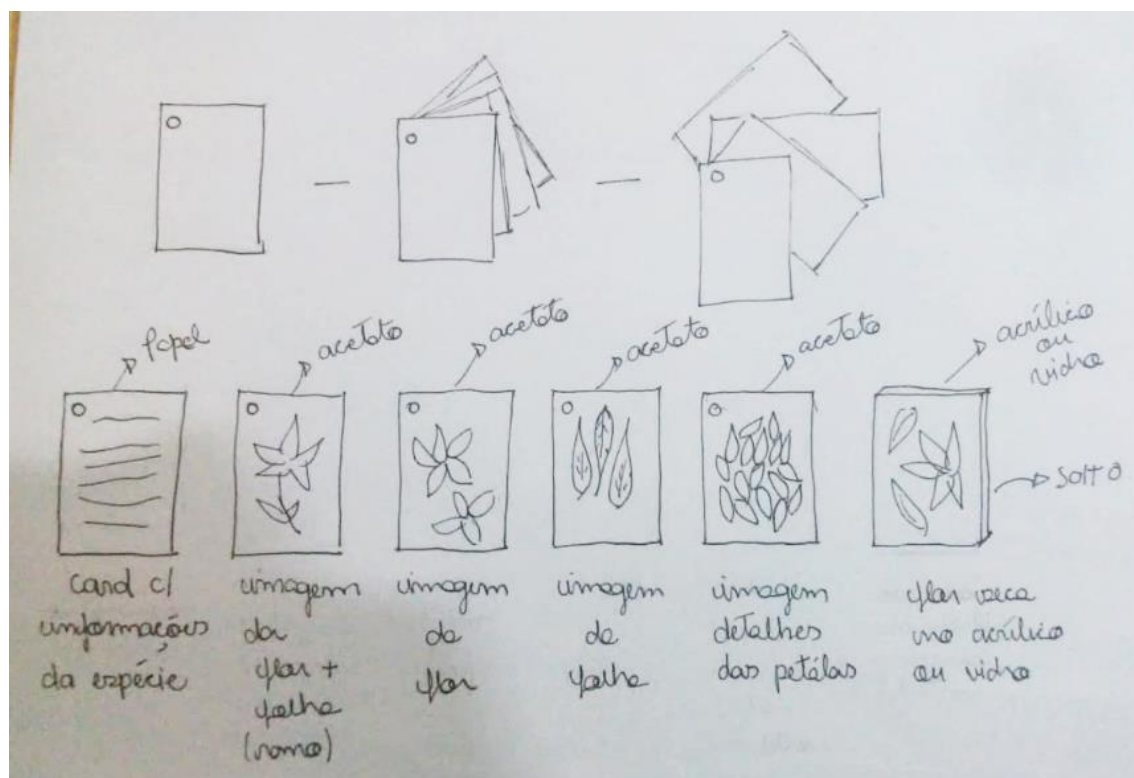 Papel
acetato
acetato
acetato
acetato
acrílico
ou
vidro
solto
card c/
informações
da espécie
imagem
da
flor +
folha
(ramo)
imagem
da
flor
imagem
da
folha
imagem
detalhes
das petálas
flor seca
no acrílico
ou vidro